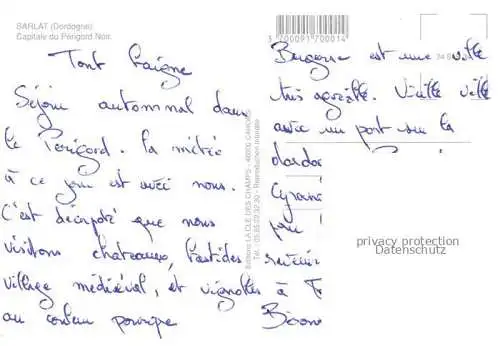 SARLAT (Dordogne)
Capitale du Périgord Noir.
3 700091 700014
Séjour automnal dans
le Périgord. la météo
à ce jour est avec nous.
C'est décrépé que nous
visitons chateaux, bastides
village médiéval, et vignobles à
au contenu pourpre
Editions LA CLE DES CHAMPS - 46000 CAHORS
Tél. : 05.65.23.92.30 - Reproduction interdite
Bergerac est une ville
très agréable. Vieille ville
avec un port sur la
dordo
Cyrano
pour
revenir
privacy protection
Datenschutz